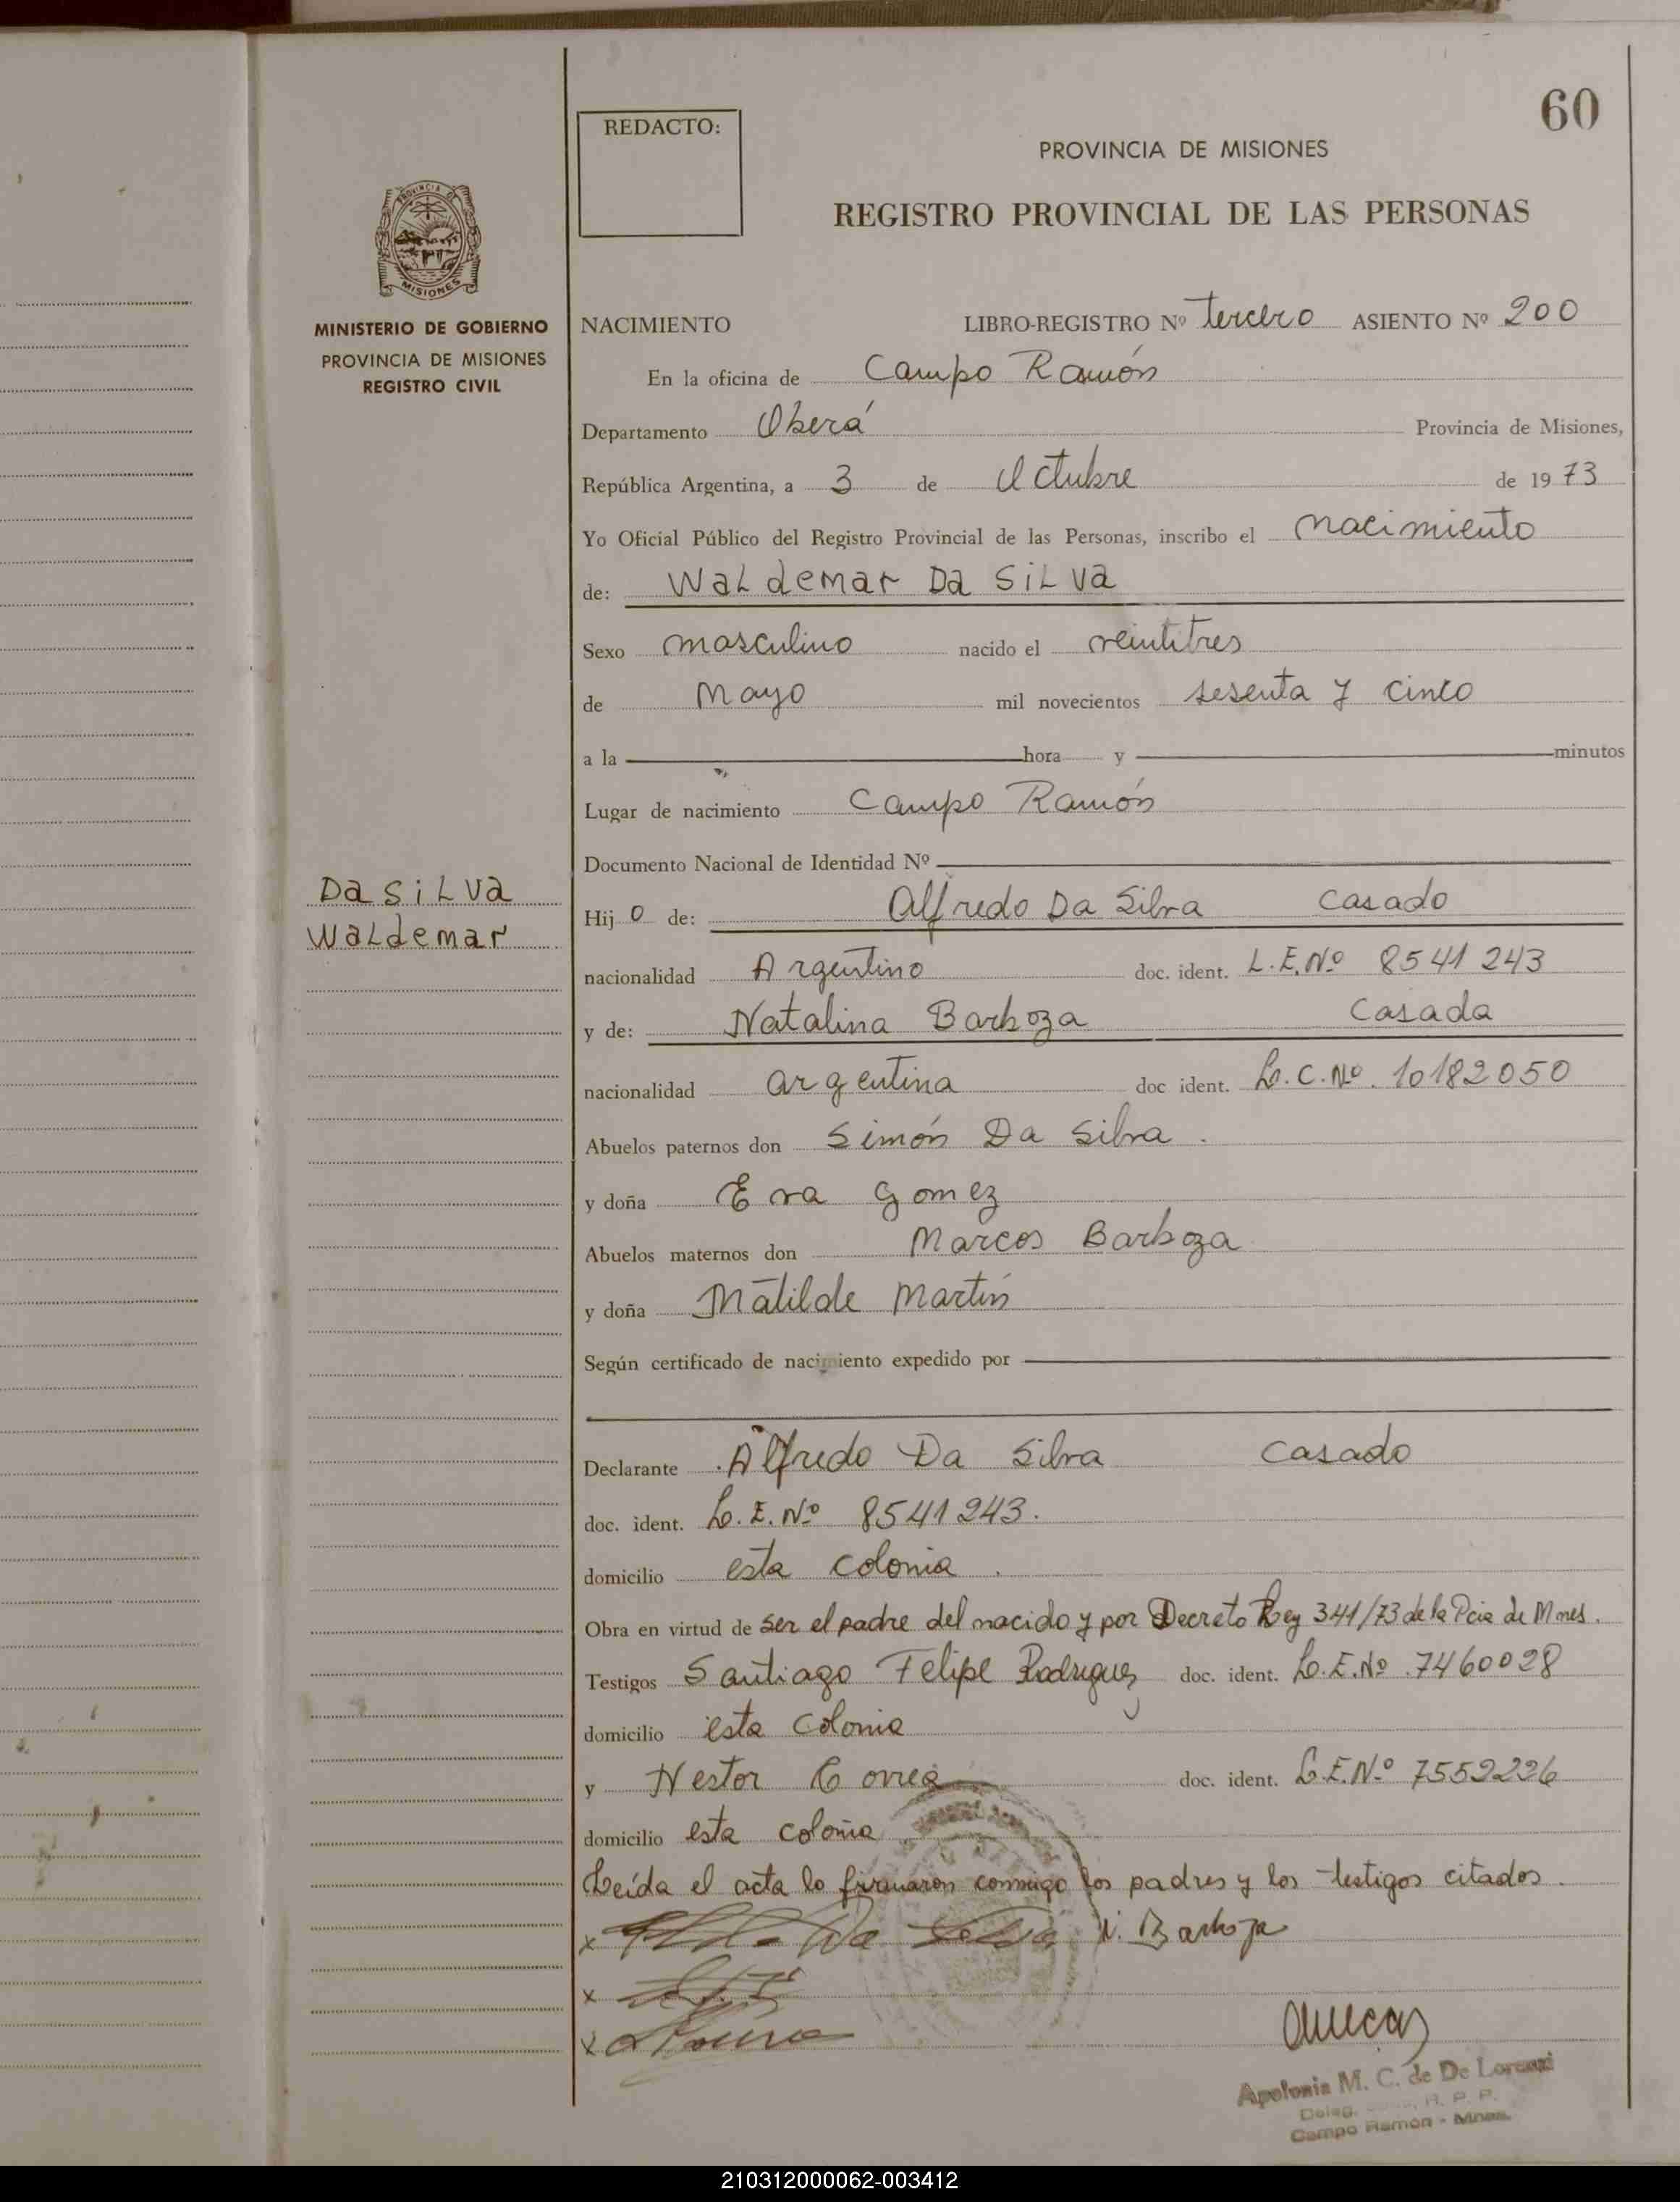 60
REDACTO:
PROVINCIA DE MISIONES
REGISTRO PROVINCIAL DE LAS PERSONAS
PROVINCIA DE
MISIONES
MINISTERIO DE GOBIERNO
PROVINCIA DE MISIONES
REGISTRO CIVIL
NACIMIENTO LIBRO-REGISTRO Nº Tercero ASIENTO Nº 200
En la oficina de Campo Ramón
Departamento Oberá Provincia de Misiones,
República Argentina, a 3 de Octubre de 1973
Yo Oficial Público del Registro Provincial de las Personas, inscribo el nacimiento
de: WaLdemar Da SiLva
Sexo masculino nacido el veintitres
de Mayo mil novecientos sesenta y cinco
a la hora y minutos
Lugar de nacimiento Campo Ramón
Documento Nacional de Identidad Nº
Da SiLva
WaLdemar
Hijo de: Alfredo Da Silva Casado
nacionalidad Argentino doc. ident. L.E.Nº 8541243
y de: Natalina Barboza Casada
nacionalidad argentina doc ident. L.C.Nº. 10182050
Abuelos paternos don Simón Da Silva.
y doña Eva Gomez
Abuelos maternos don Marcos Barboza
y doña Matilde Martín
Según certificado de nacimiento expedido por
Declarante Alfredo Da Silva Casado
doc. ident. L.E.Nº 8541243.
domicilio esta colonia.
Obra en virtud de ser el padre del nacido y por Decreto Ley 341/73 de la Pcia de Mnes.
Testigos Santiago Felipe Rodriguez doc. ident. L.E.Nº 7460028
domicilio esta colonia
y Nestor Correa doc. ident. L.E.Nº 7552226
domicilio esta colonia
Leída el acta lo firmaron conmigo los padres y los testigos citados.
x Da Silva N. Barboza
x
x
Apolonia M. C. de De Lorenzi
Deleg. R. P. P.
Campo Ramón - Mnes.
210312000062-003412